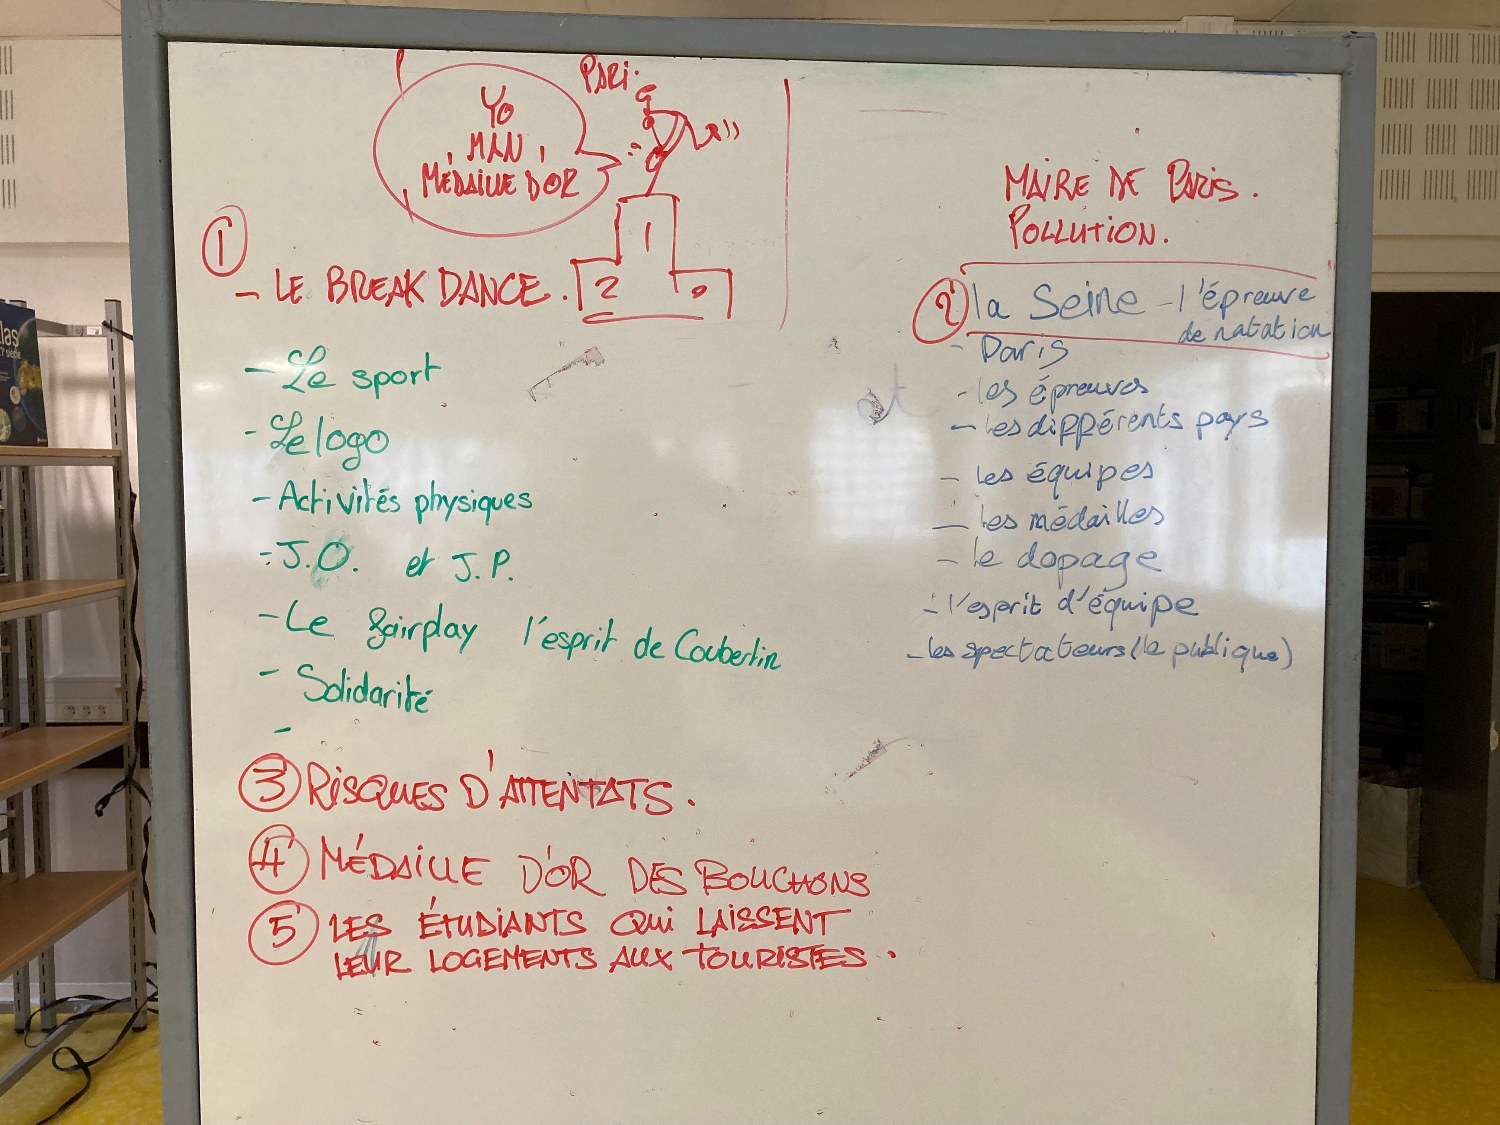 PARI.
YO
MAN,
MÉDAILLE D'OR
1
2
①
- LE BREAK DANCE.
- Le sport
- Le logo
- Activités physiques
- J.O. et J.P.
- Le fairplay l'esprit de Coubertin
- Solidarité
-
③ RISQUES D'ATTENTATS.
④ MÉDAILLE D'OR DES BOUCHONS
⑤ LES ÉTUDIANTS QUI LAISSENT
LEUR LOGEMENTS AUX TOURISTES.
MAIRE DE PARIS.
POLLUTION.
② la Seine - l'épreuve
de natation
- Paris
- les épreuves
- les différents pays
- les équipes
- les médailles
- le dopage
- l'esprit d'équipe
- les spectateurs (le publique)